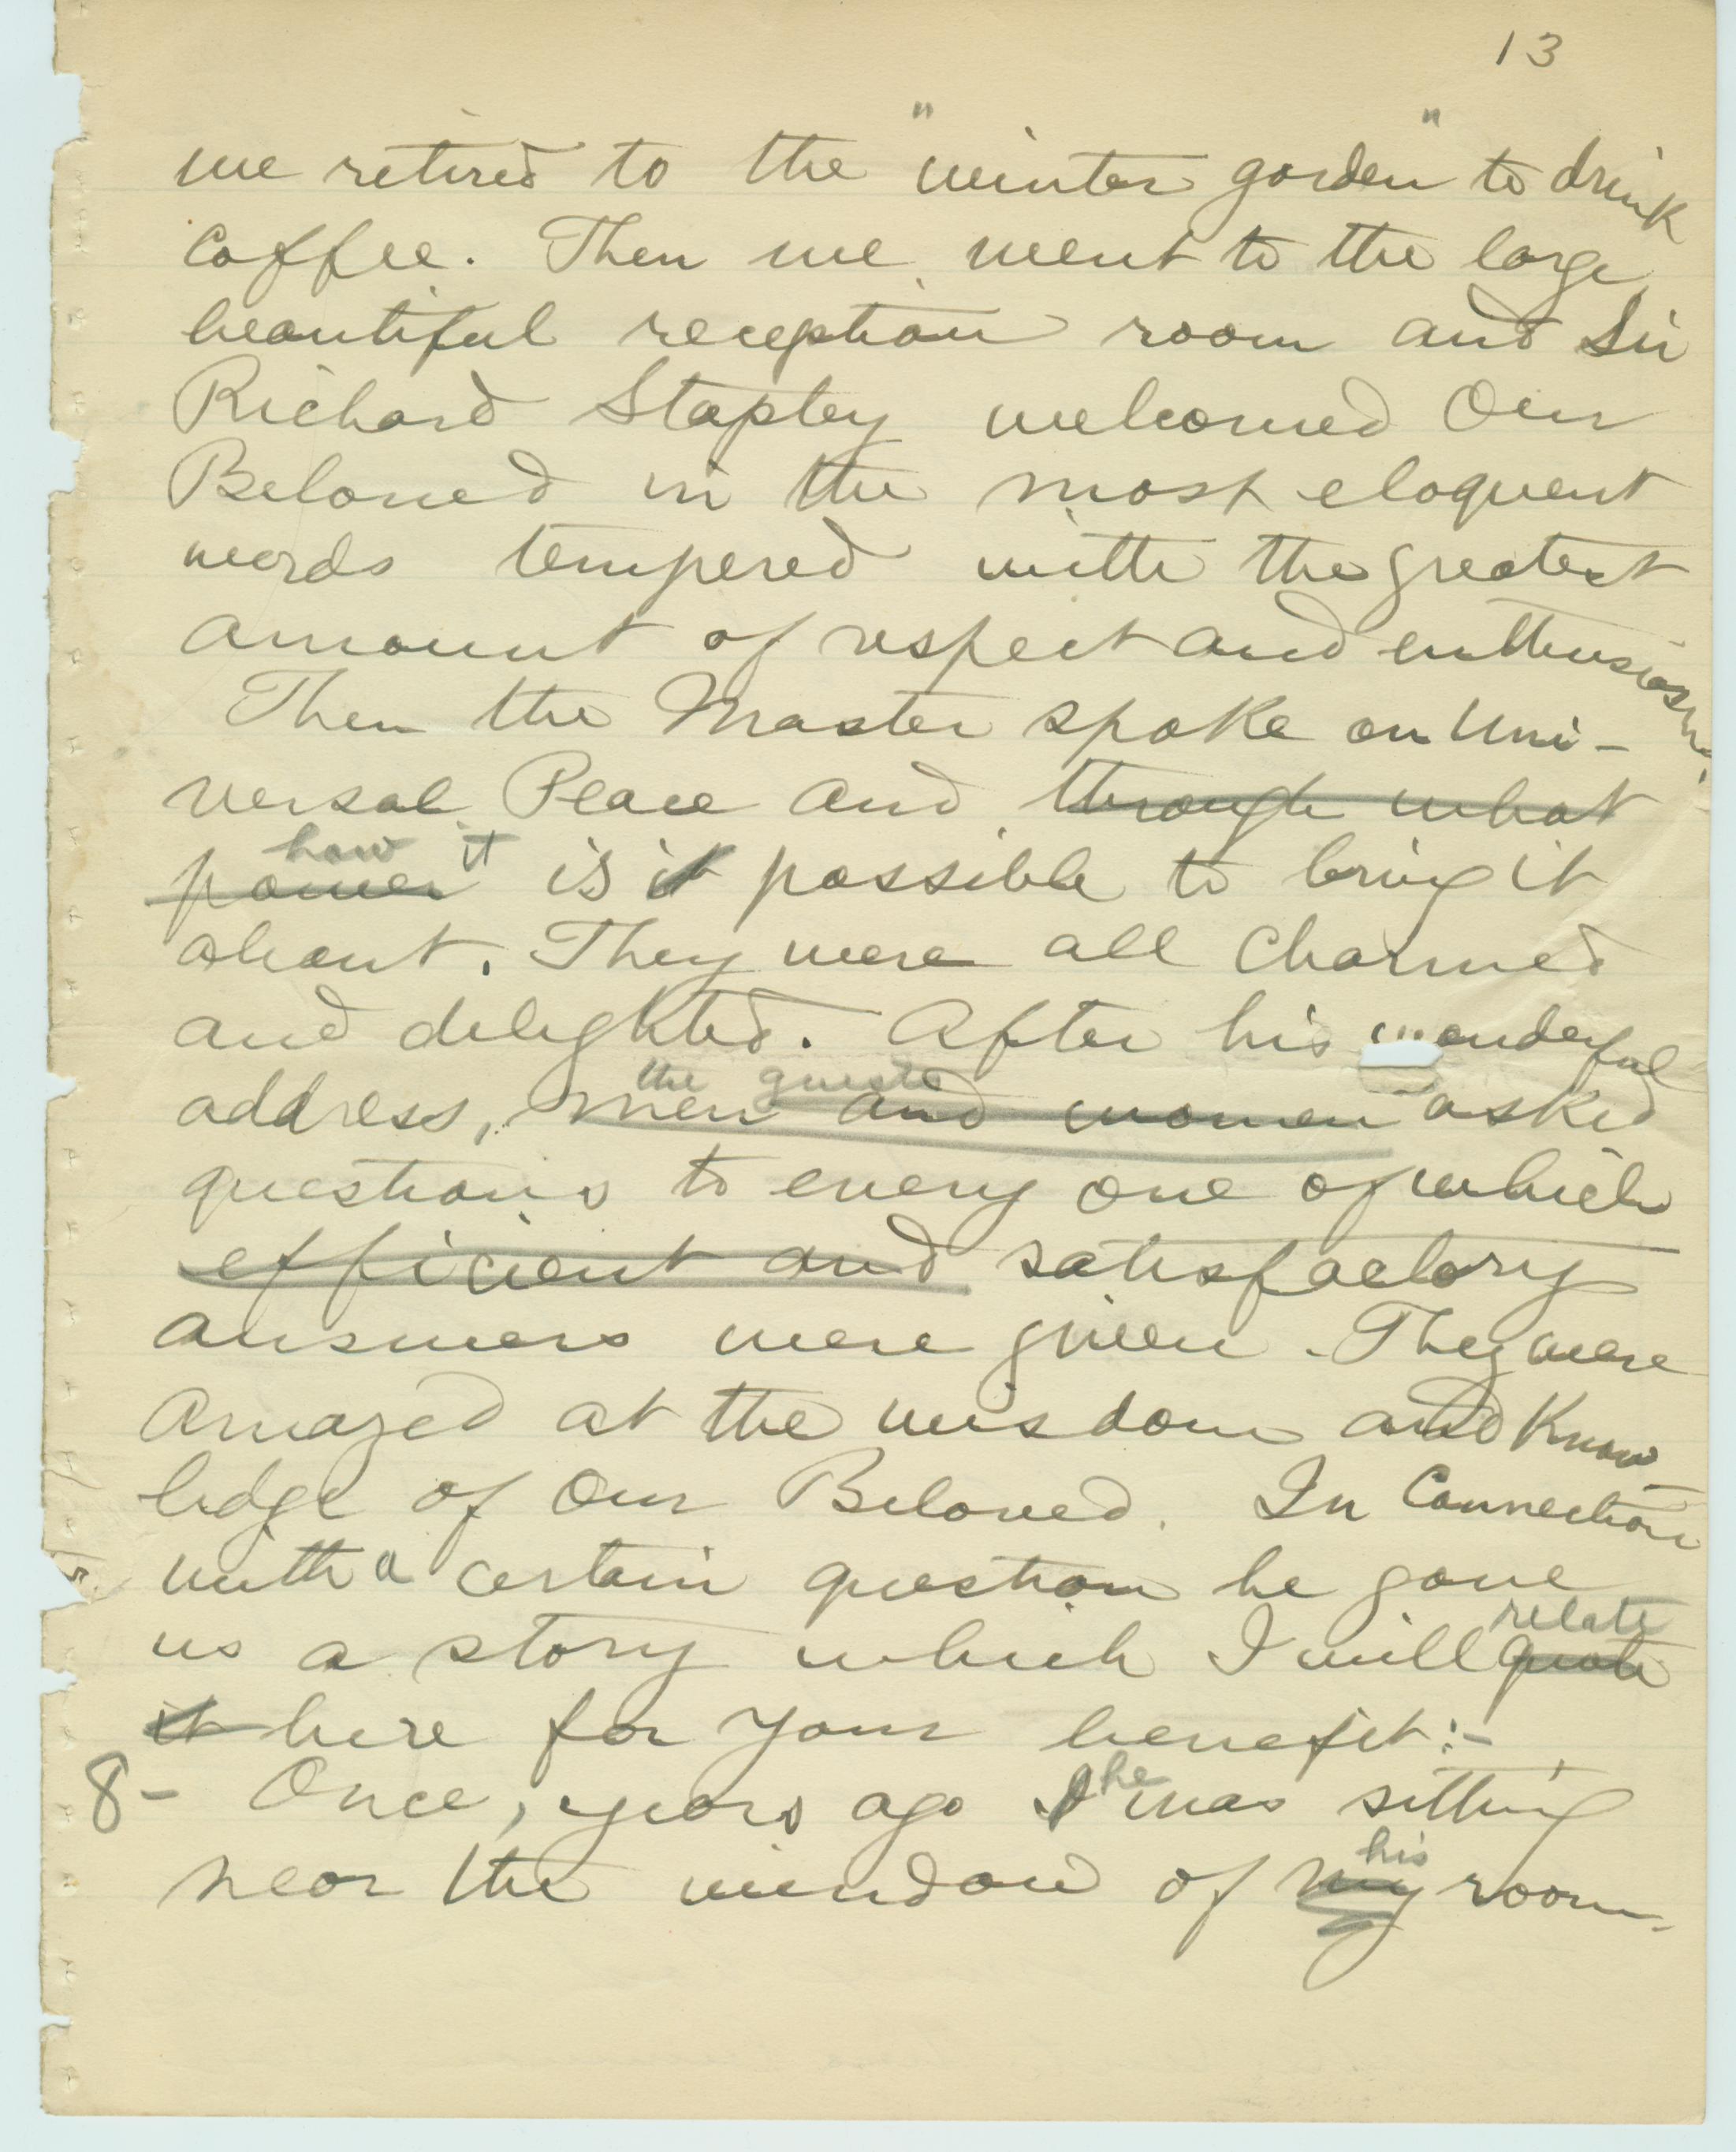 13
we retired to the "winter garden" to drink
coffee. Then we went to the large
beautiful reception room and Sir
Richard Stapley welcomed Our
Beloved in the most eloquent
words tempered with the greatest
amount of respect and enthusiasm.
Then the Master spoke on Uni-
versal Peace and through what
how it
power is it possible to bring it
about. They were all charmed
and delighted. After his wonderful
the guests
address, men and women asked
questions to every one of which
efficient and satisfactory
answers were given. They were
amazed at the wisdom and Know-
ledge of Our Beloved. In Connection
with a certain question he gave
relate
us a story which I will quote
it here for your benefit:-
he
8- Once, years ago I was sitting
his
near the window of my room.